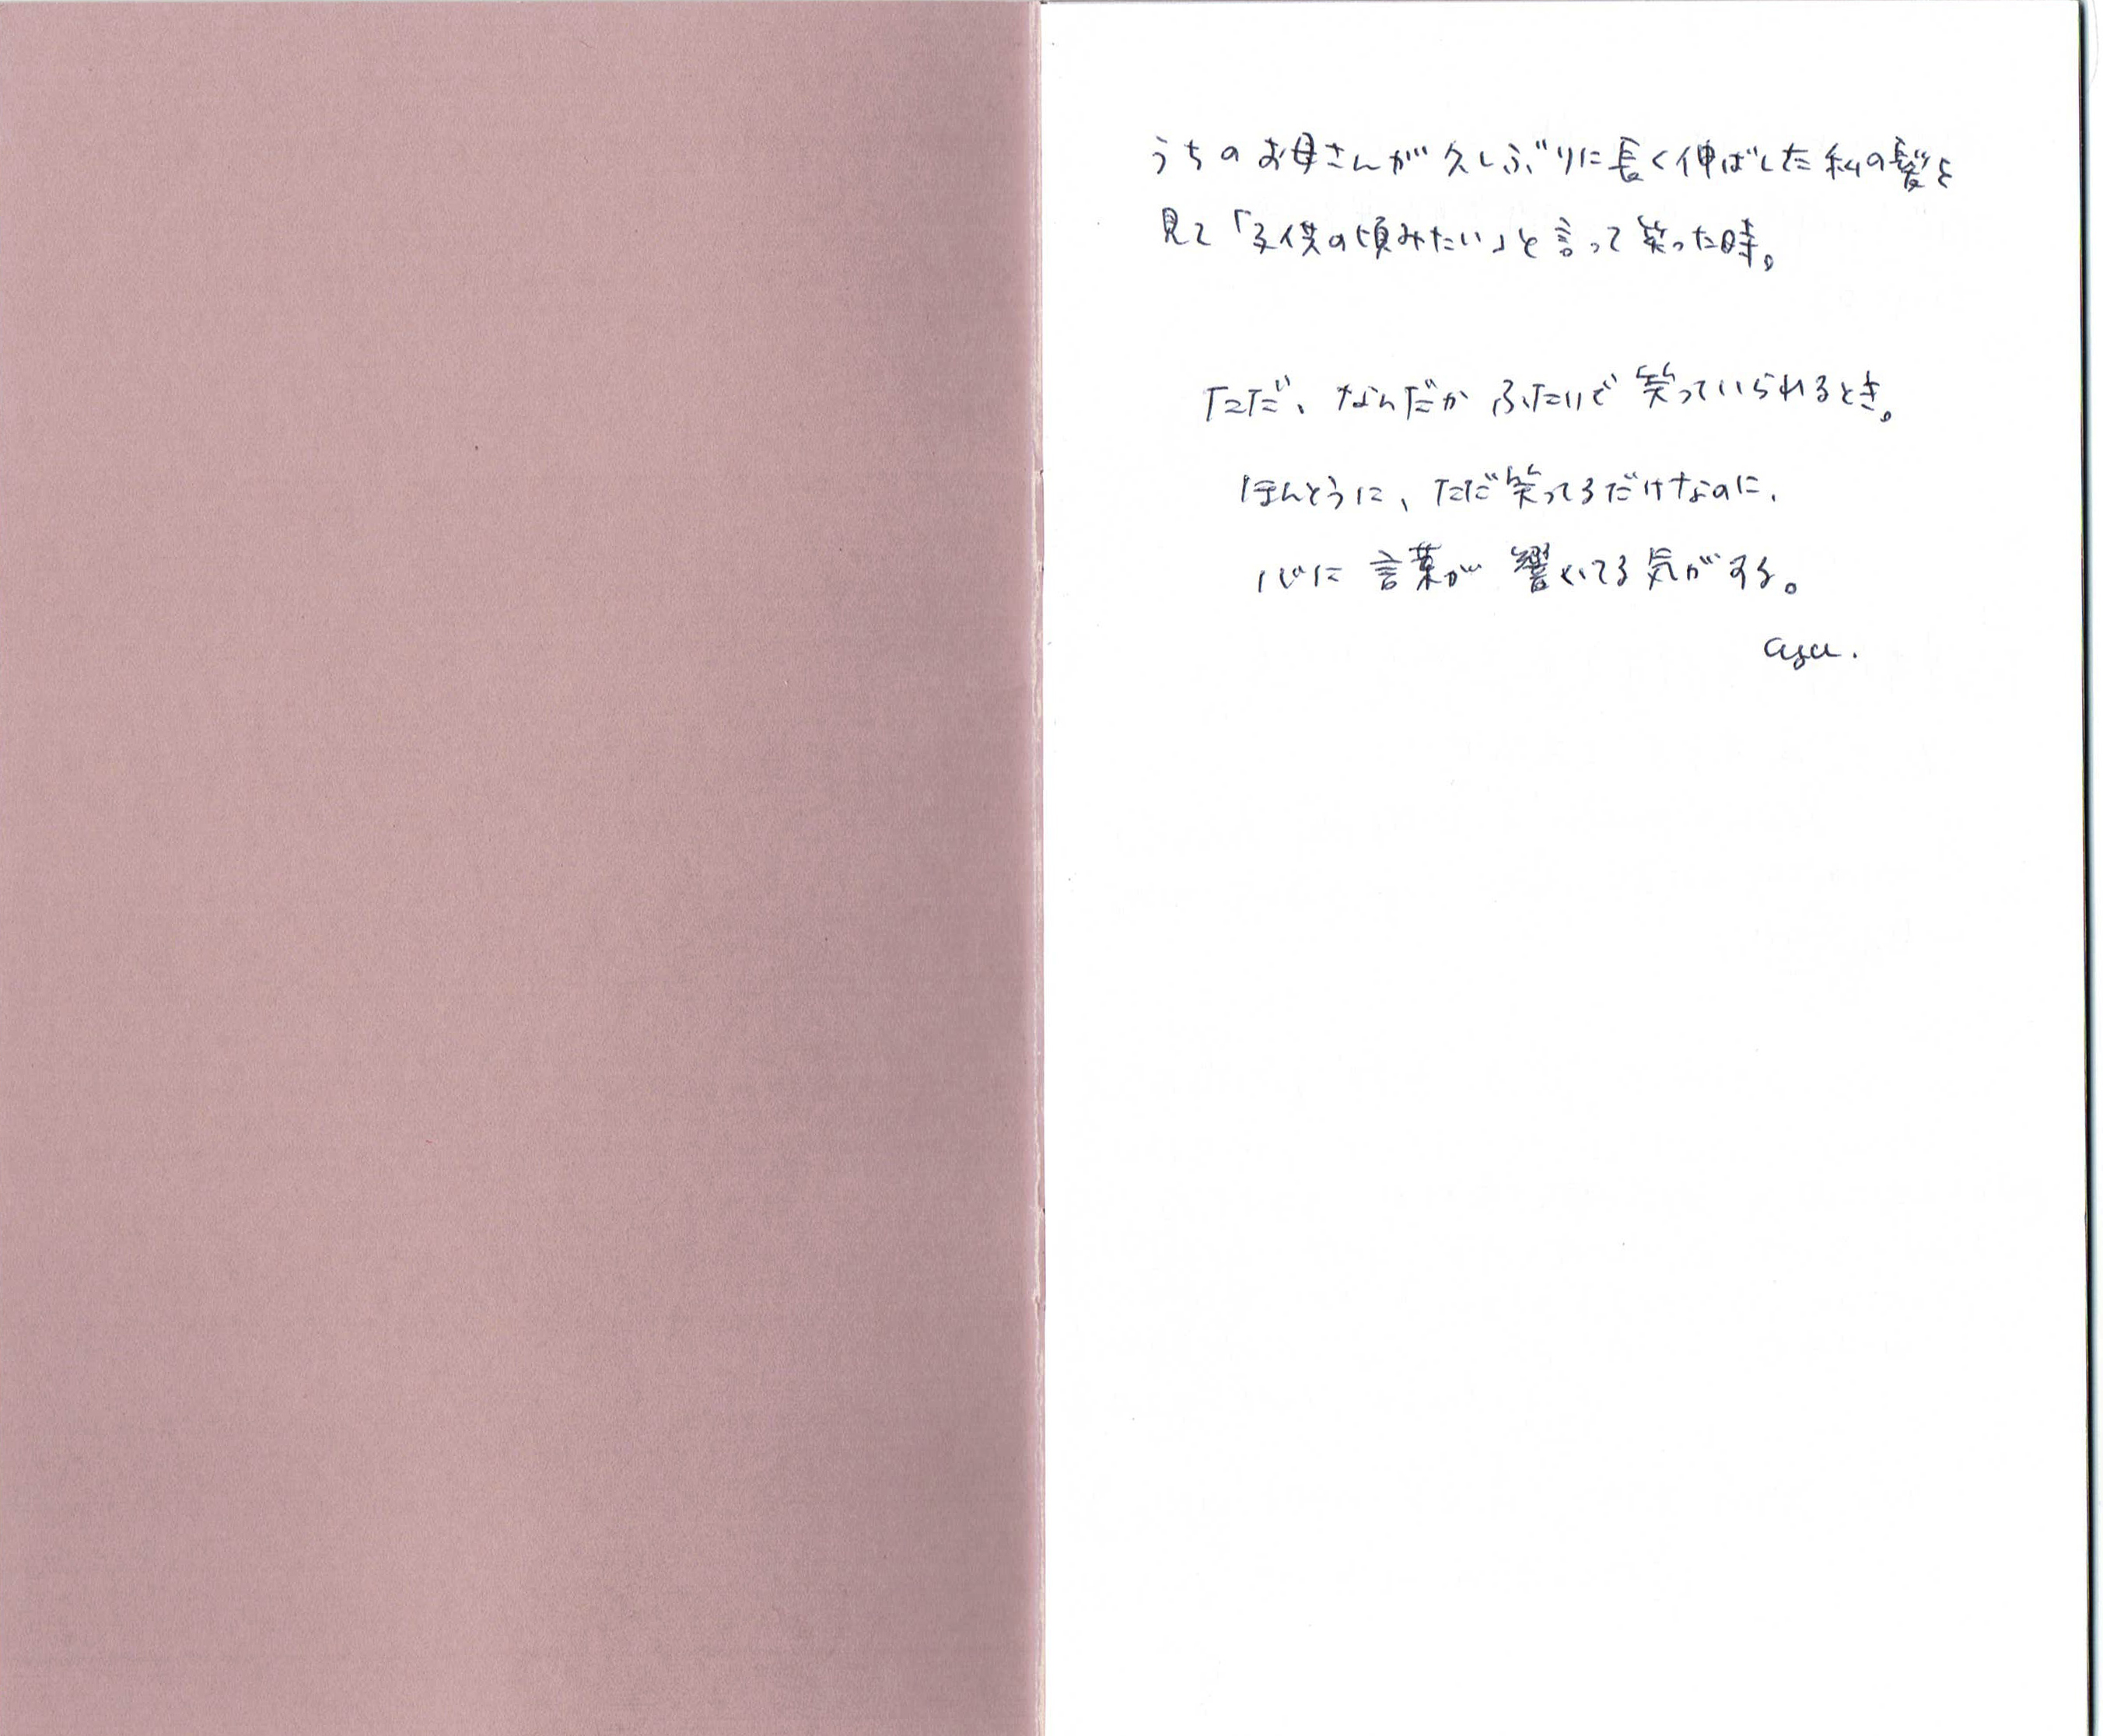 うちのお母さんが久しぶりに長く伸ばした私の髪を
見て「子供の頃みたい」と言って笑った時。
ただ、なんだかふたりで笑っていられるとき。
ほんとうに、ただ笑ってるだけなのに、
心に言葉が響いてる気がする。